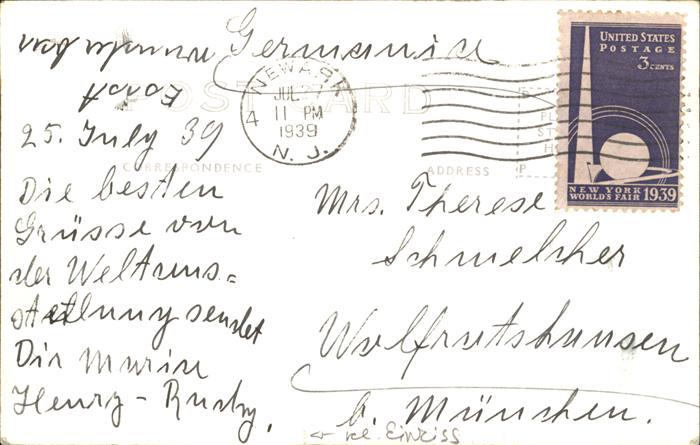 Germania
POST CARD
NEWARK
JUL 27
4 11 PM
1939
N. J.
UNITED STATES
POSTAGE
3 CENTS
NEW YORK
WORLD'S FAIR 1939
25. July 39
CORRESPONDENCE
ADDRESS
Die besten
Grüsse von
der Weltaus=
stellung sendet
Dir Maria
Henry - Rusby.
Mrs. Therese
Schmelcher
Wolfratshausen
b. München.
kl. Einriss